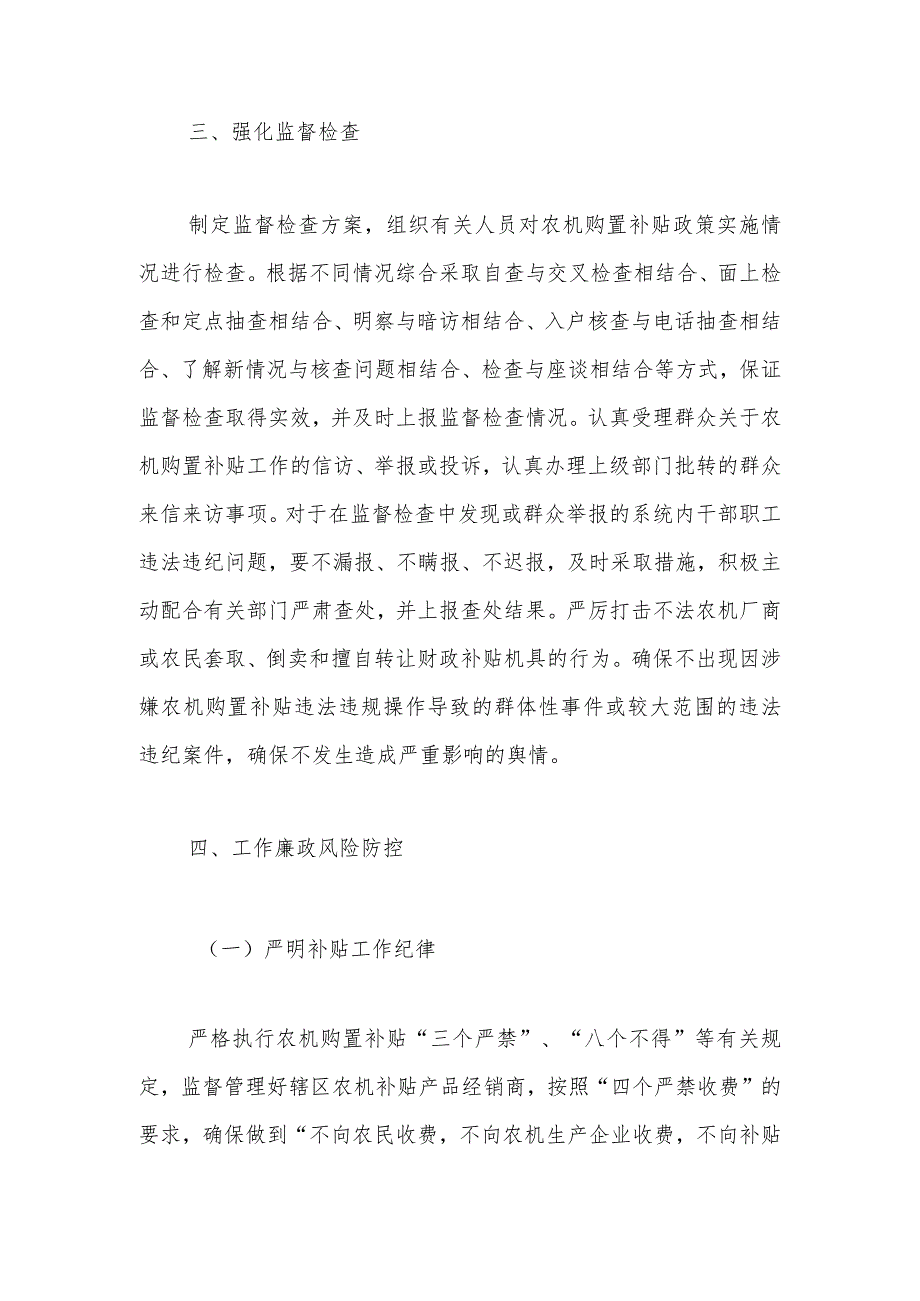 三、强化监督检查
制定监督检查方案，组织有关人员对农机购置补贴政策实施情
况进行检查。根据不同情况综合采取自查与交叉检查相结合、面上检
查和定点抽查相结合、明察与暗访相结合、入户核查与电话抽查相结
合、了解新情况与核查问题相结合、检查与座谈相结合等方式，保证
监督检查取得实效，并及时上报监督检查情况。认真受理群众关于农
机购置补贴工作的信访、举报或投诉，认真办理上级部门批转的群众
来信来访事项。对于在监督检查中发现或群众举报的系统内干部职工
违法违纪问题，要不漏报、不瞒报、不迟报，及时采取措施，积极主
动配合有关部门严肃查处，并上报查处结果。严厉打击不法农机厂商
或农民套取、倒卖和擅自转让财政补贴机具的行为。确保不出现因涉
嫌农机购置补贴违法违规操作导致的群体性事件或较大范围的违法
违纪案件，确保不发生造成严重影响的舆情。
四、工作廉政风险防控
（一）严明补贴工作纪律
严格执行农机购置补贴“三个严禁”、“八个不得”等有关规
定，监督管理好辖区农机补贴产品经销商，按照“四个严禁收费”的
要求，确保做到“不向农民收费，不向农机生产企业收费，不向补贴